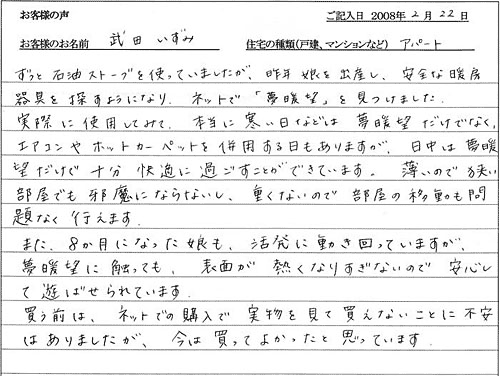 お客様の声 ご記入日 2008年2月22日
お客様のお名前 武田 いずみ 住宅の種類(戸建、マンションなど) アパート
ずっと石油ストーブを使っていましたが、昨年娘を出産し、安全な暖房
器具を探すようになり、ネットで「夢暖望」を見つけました。
実際に使用してみて、本当に寒い日などは夢暖望だけでなく、
エアコンやホットカーペットを併用する日もありますが、日中は夢暖
望だけで十分快適に過ごすことができています。薄いので狭い
部屋でも邪魔にならないし、重くないので部屋の移動も問
題なく行えます。
また、8か月になった娘も、活発に動き回っていますが、
夢暖望に触っても、表面が熱くなりすぎないので安心し
て遊ばせられています。
買う前は、ネットでの購入で実物を見て買えないことに不安
はありましたが、今は買ってよかったと思っています。